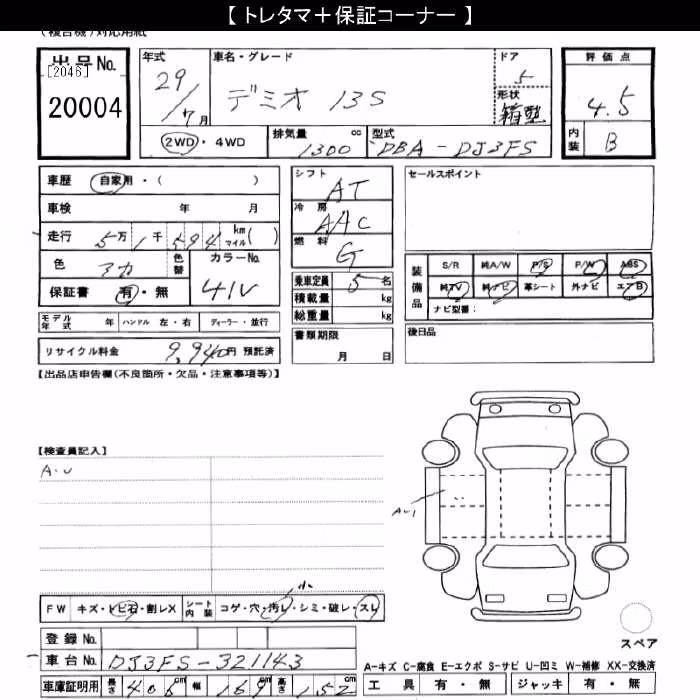 【 トレタマ＋保証コーナー 】
(複合機)対応用紙
出品No.
[2046]
20004
年式
29/7月
車名・グレード
デミオ 13S
ドア
5
形状
箱型
2WD・4WD
排気量 cc
1300
型式
DBA-DJ3FS
評価点
4.5
内装
B
車歴 自家用・( )
車検 年 月
走行 5万1千594 km マイル( )
色 アカ 色替
カラーNo.
41V
保証書 有・無
モデル年式 年 ハンドル 左・右 ディーラー・並行
リサイクル料金 9,940円 預託済
シフト
AT
冷房
AAC
燃料
G
乗車定員 5 名
積載量 kg
総重量 kg
書類期限
月 日
セールスポイント
装備品
S/R 純A/W P/S P/W ABS
純TV 純ナビ 革シート 外ナビ エアB
ナビ型番：
後日品
【出品店申告欄(不良箇所・欠品・注意事項等)】
【検査員記入】
A・U
A-1
小
FW キズ・トビ石・割レX シート内装 コゲ・穴・汚レ・シミ・破レ・スレ
登録No.
車台No. DJ3FS-321143
車庫証明用 長さ 406cm 幅 169cm 高さ 152cm
スペア
A-キズ C-腐食 E-エクボ S-サビ U-凹ミ W-補修 XX-交換済
工具 有・無 ジャッキ 有・無